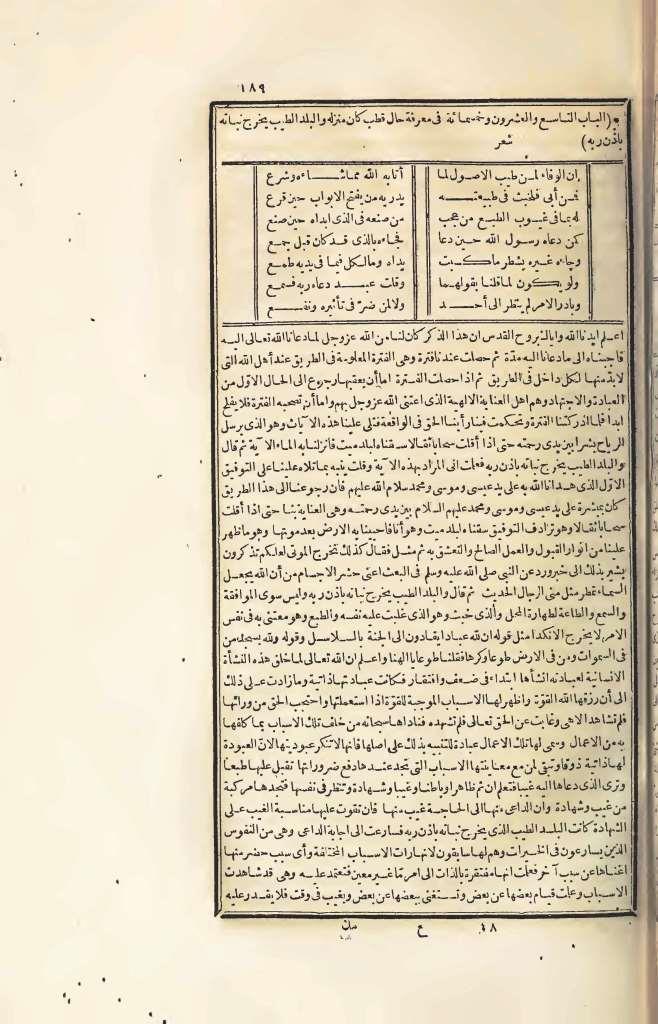 ١٨٩
*(الباب التاسع والعشرون وخمسمائة فى معرفة حال قطب كان منزله والبلد الطيب يخرج نباته
باذن ربه) شعر
ان الوفاء لمن طيب الاصول لما أتابه الله مماشاءه وشرع
فمن أبى فلخبث فى طبيعته يدريه من يفتح الابواب حين قرع
له بما فى غيوب الطبع من عجب من صنعه فى الذى ابداه حين صنع
كمن دعاه رسول الله حين دعا فجاءه بالذى قد كان قبل جمع
وجاءه غيره بشطر ما كسبت يداه ومالكل فيما فى يديه طمع
ولو يكون لما قلنا بقولهما وقلت عبد دعاه ربه فسمع
وبادر الامر لم ينظر الى أحد ولالمن ضر فى تأثيره ونفع
اعلم ايدنا الله وايا لـ بروح القدس ان هذا الذكر كان لنا من الله عز وجل لما دعانا الله تعالى اليه
فاجبناه الى ما دعانا اليه مدة ثم حصلت عندنا فترة وهى الفترة المعلومة فى الطريق عند أهل الله التى
لا بد منها لكل داخل فى الطريق ثم اذا حصلت الفترة اما أن يعقبها رجوع الى الحال الاول من
العبادة والاجتهاد وهم اهل العناية الالهية الذى اعتنى الله عز وجل بهم واما أن تصحبه الفترة فلا يفلح
ابدا فلما ادركتنا الفترة وتحكمت فينا رأينا الحق فى الواقعة فتلى علينا هذه الآيات وهو الذى يرسل
الرياح بشرا بين يدى رحمته حتى اذا أقلت سحابا ثقالا سقناه لبلد ميت فانزلنا به الماء الآية ثم قال
والبلد الطيب يخرج نباته باذن ربه فعلمت انى المراد بهذه الآية وقلت ينبه بما تلاه علينا على التوفيق
الاول الذى هدانا الله به على يد عيسى وموسى ومحمد سلام الله عليهم فان رجوعنا الى هذا الطريق
كان بمبشرة على يد عيسى وموسى ومحمد عليهم السلام بين يدى رحمته وهى العناية بنا حتى اذا أقلت
سحابا ثقالا وهو ترادف التوفيق سقناه لبلد ميت وهو أنا فاحيينا به الارض بعد موتها وهو ما ظهر
علينا من انوار القبول والعمل الصالح والتعشق به ثم مثل فقال كذلك نخرج الموتى لعلكم تذكرون
يشير بذلك الى خبر ورد عن النبى صلى الله عليه وسلم فى البعث اعنى حشر الاجسام من أن الله يجعل
السماء تمطر مثل منى الرجال الحديث ثم قال والبلد الطيب يخرج نباته باذن ربه وليس سوى الموافقة
والسمع والطاعة لطهارة المحل والذى خبث وهو الذى غلبت عليه نفسه والطبع وهو معتنى به فى نفس
الامر لا يخرج الا نكدا مثل قوله ان لله عبادا يقادون الى الجنة بالسلاسل وقوله ولله يسجد من
فى السموات ومن فى الارض طوعا وكرها فقلنا طوعا يا الهنا واعلم ان الله تعالى لما خلق هذه النشأة
الانسانية لعبادته انشأها ابتداء فى ضعف وافتقار فكانت عبادتها ذاتية وما زالت على ذلك
الى أن رزقها الله القوة واظهر لها الاسباب الموجبة للقوة اذا استعملتها واحتجب الحق من ورائها
فلم تشاهد الا هى وغابت عن الحق تعالى فلم تشهده فناداها سبحانه من خلف تلك الاسباب بما كلفها
به من الاعمال وسمى لها تلك الاعمال عبادة للتنبيه بذلك على اصلها فانها لا تنكر عبوديتها لان العبودة
لها ذاتية ذوقا وتبقى لمن مع معاينتها الاسباب التى تجد عندها دفع ضروراتها تقبل عليها طبعا
وترى الذى دعاها اليه غيبا فتعلم ان ثم ظاهرا وباطنا وغيبا وشهادة وتنظر فى نفسها فتجدها مركبة
من غيب وشهادة وان الداعى منها الى الحاجة غيب منها فان تقوت عليها مناسبة الغيب على
الشهادة كانت البلد الطيب الذى يخرج نباته باذن ربه فسارعت الى اجابة الداعى وهى من النفوس
الذين يسارعون فى الخيرات وهم لها سابقون لانها رأت الاسباب المختلفة وأى سبب حضر منها
اغناها عن سبب آخر فعلمت انها مفتقرة بالذات الى امر تما غير معين فتعتمد عليه وهى قد شاهدت
الاسباب وعلمت قيام بعضها عن بعض وتستغنى ببعضها عن بعض ويغيب فى وقت فلا يقدر عليه
١٨ ع مك